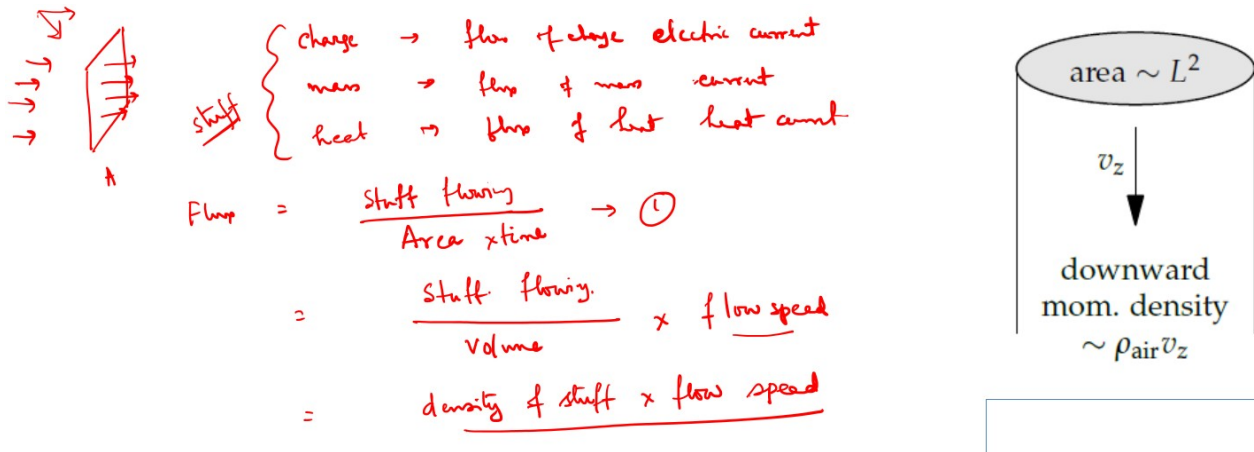 charge → flux of charge electric current
mass → flux of mass current
stuff
heat → flux of heat heat current
A
Flux = stuff flowing / Area x time → ①
= stuff flowing. / volume x flow speed
= density of stuff x flow speed
area ∼ L²
v_z
downward
mom. density
∼ ρ_air v_z